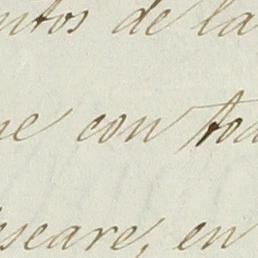 ntos de la
ne con tod
eseare, en